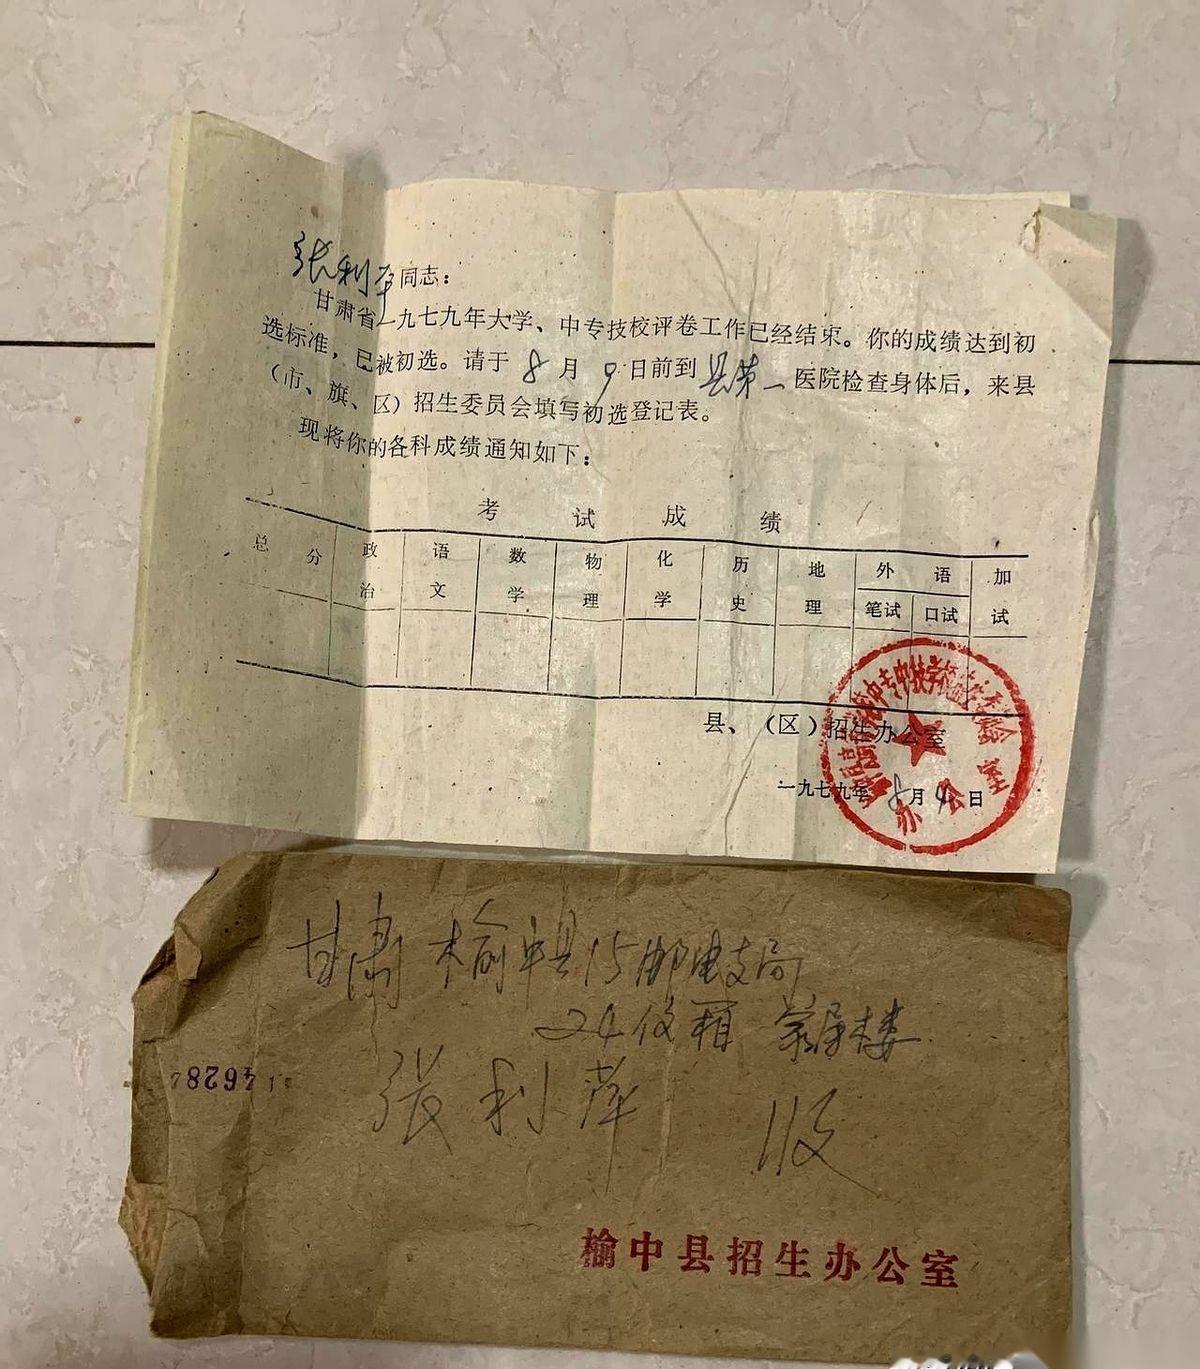 张利苹同志：
甘肃省一九七九年大学、中专技校评卷工作已经结束。你的成绩达到初
选标准，已被初选。请于8月9日前到县第一医院检查身体后，来县
（市、旗、区）招生委员会填写初选登记表。
现将你的各科成绩通知如下：
考试成绩
总分 政治 语文 数学 物理 化学 历史 地理 外语 加试
笔试 口试
县、（区）招生办公室
一九七九年8月4日
办公室
甘肃榆中县15邮电支局
24信箱 楼
张利萍 收
46284
榆中县招生办公室